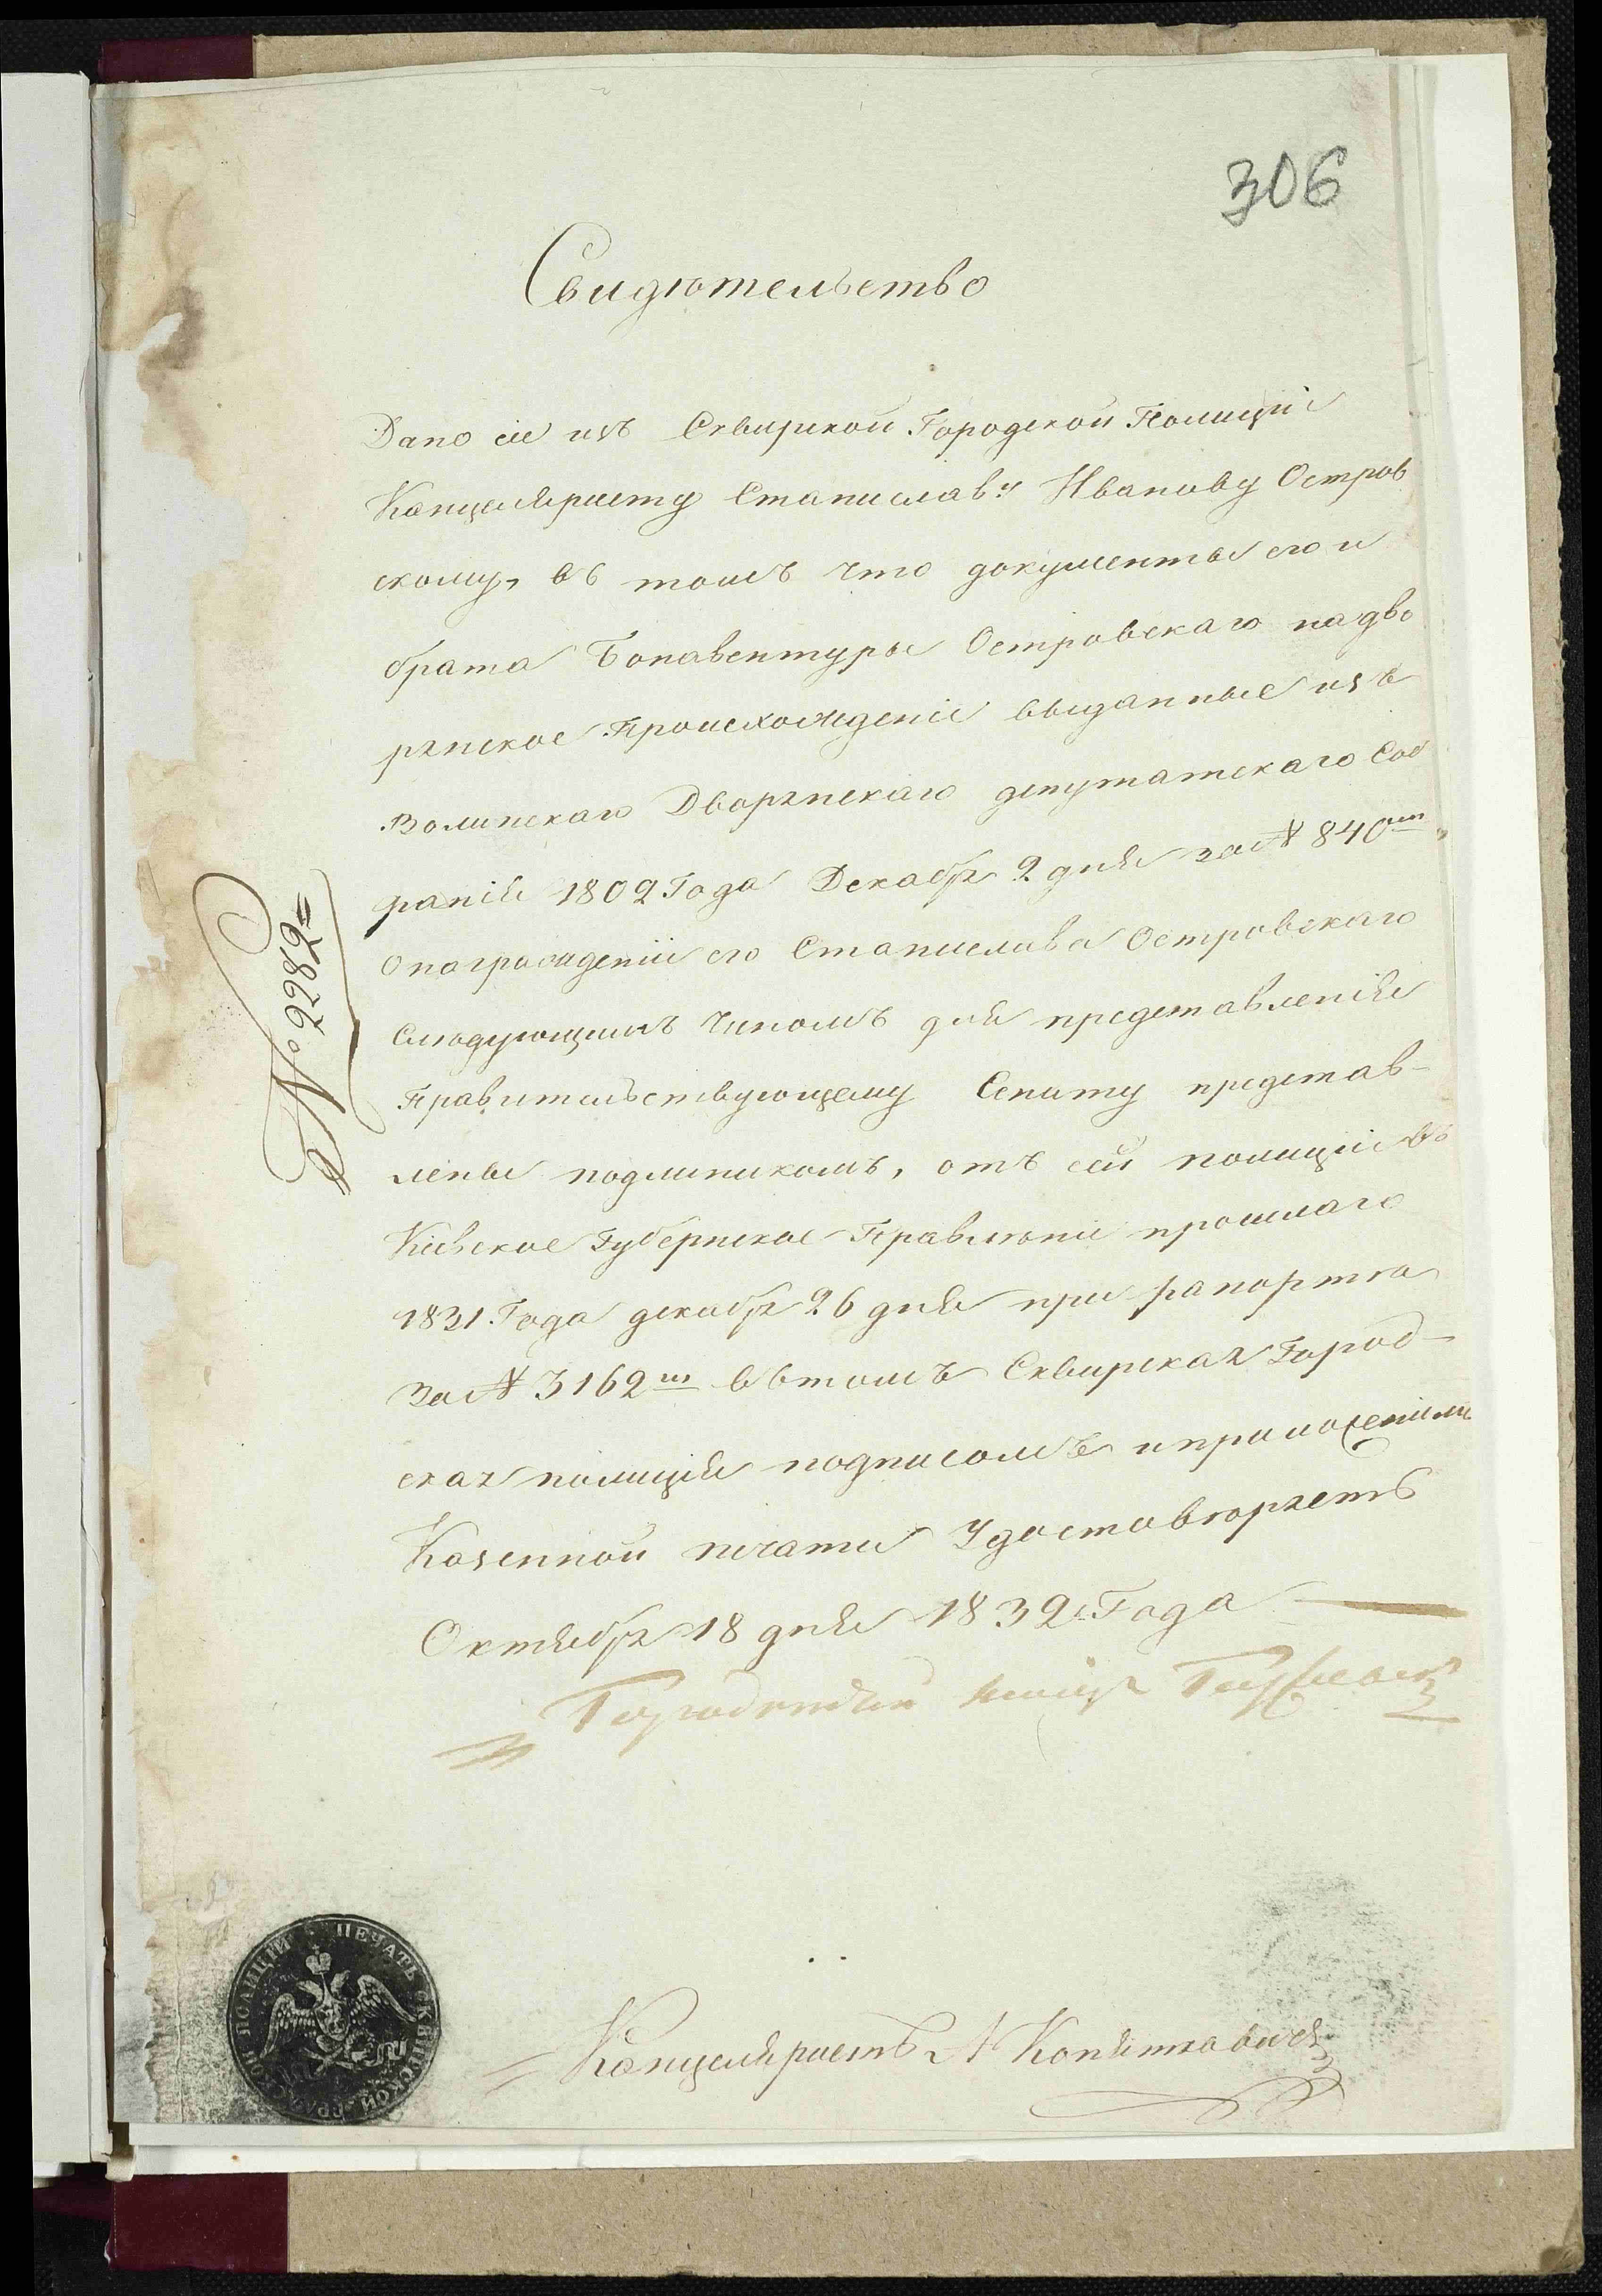 306
Свидѣтельство
Дано сіе изъ Сквирской Городской Полиціи
Канцеляристу Станиславу Иванову Остров
скому, въ томъ что документы его и
брата Бонавентуры Островскаго на дво
рянское Происхожденіе выданные изъ
Волинскаго Дворянскаго депутатскаго Соб
ранія 1802 Года Декабря 2 дня за № 840м
О награжденіи его Станислава Островскаго
Слѣдующимъ Чиномъ для представленія
Правительствующему Сенату представ-
лены подлинникомъ, отъ сей полиціи въ
Кіевское Губернское Правленіе прошлаго
1831 Года декабря 26 дня при рапортѣ
За № 3162м въ томъ Сквирская Город-
ская полиція подписомъ и приложеніемъ
Казенной печати Удостовѣряетъ
Октября 18 дня 1832 Года
№ 2282
Городничій
Канцеляристъ
ПЕЧАТЬ СКВИРСКОЙ ГРАДСКОЙ ПОЛИЦІИ